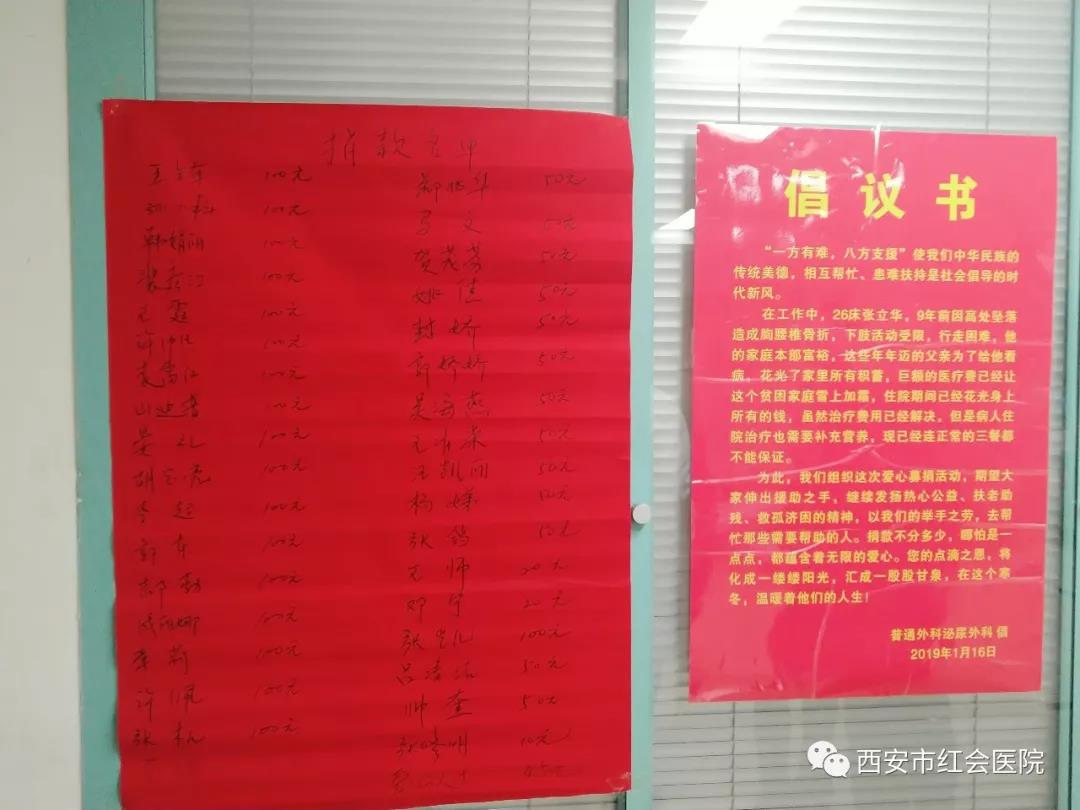 捐款名单
100元
100元
韩娟丽 100元
100元
王霆 100元
100元
100元
100元
晏 100元
胡 100元
李超 100元
郭东 100元
郝勃 100元
娜 100元
李莉 100元
许佩 100元
张 100元
郑 50元
马文 50元
贺 50元
姚佳 50元
封娇 50元
郭娇娇 50元
吴海燕 50元
王 50元
汪凯丽 50元
杨
张鸽 50元
师 20元
邓宁 20元
张 100元
吕 50元
帅奎 50元
张 10元
倡议书
“一方有难，八方支援”使我们中华民族的
传统美德，相互帮忙、患难扶持是社会倡导的时
代新风。
在工作中，26床张立华，9年前因高处坠落
造成胸腰椎骨折，下肢活动受限，行走困难，他
的家庭本部富裕，这些年年迈的父亲为了给他看
病，花光了家里所有积蓄，巨额的医疗费已经让
这个贫困家庭雪上加霜，住院期间已经花光身上
所有的钱，虽然治疗费用已经解决，但是病人住
院治疗也需要补充营养，现已经连正常的三餐都
不能保证。
为此，我们组织这次爱心募捐活动，期望大
家伸出援助之手，继续发扬热心公益、扶老助
残、救孤济困的精神，以我们的举手之劳，去帮
忙那些需要帮助的人。捐款不分多少，哪怕是一
点点，都蕴含着无限的爱心。您的点滴之恩，将
化成一缕缕阳光，汇成一股股甘泉，在这个寒
冬，温暖着他们的人生！
普通外科泌尿外科 倡
2019年1月16日
西安市红会医院